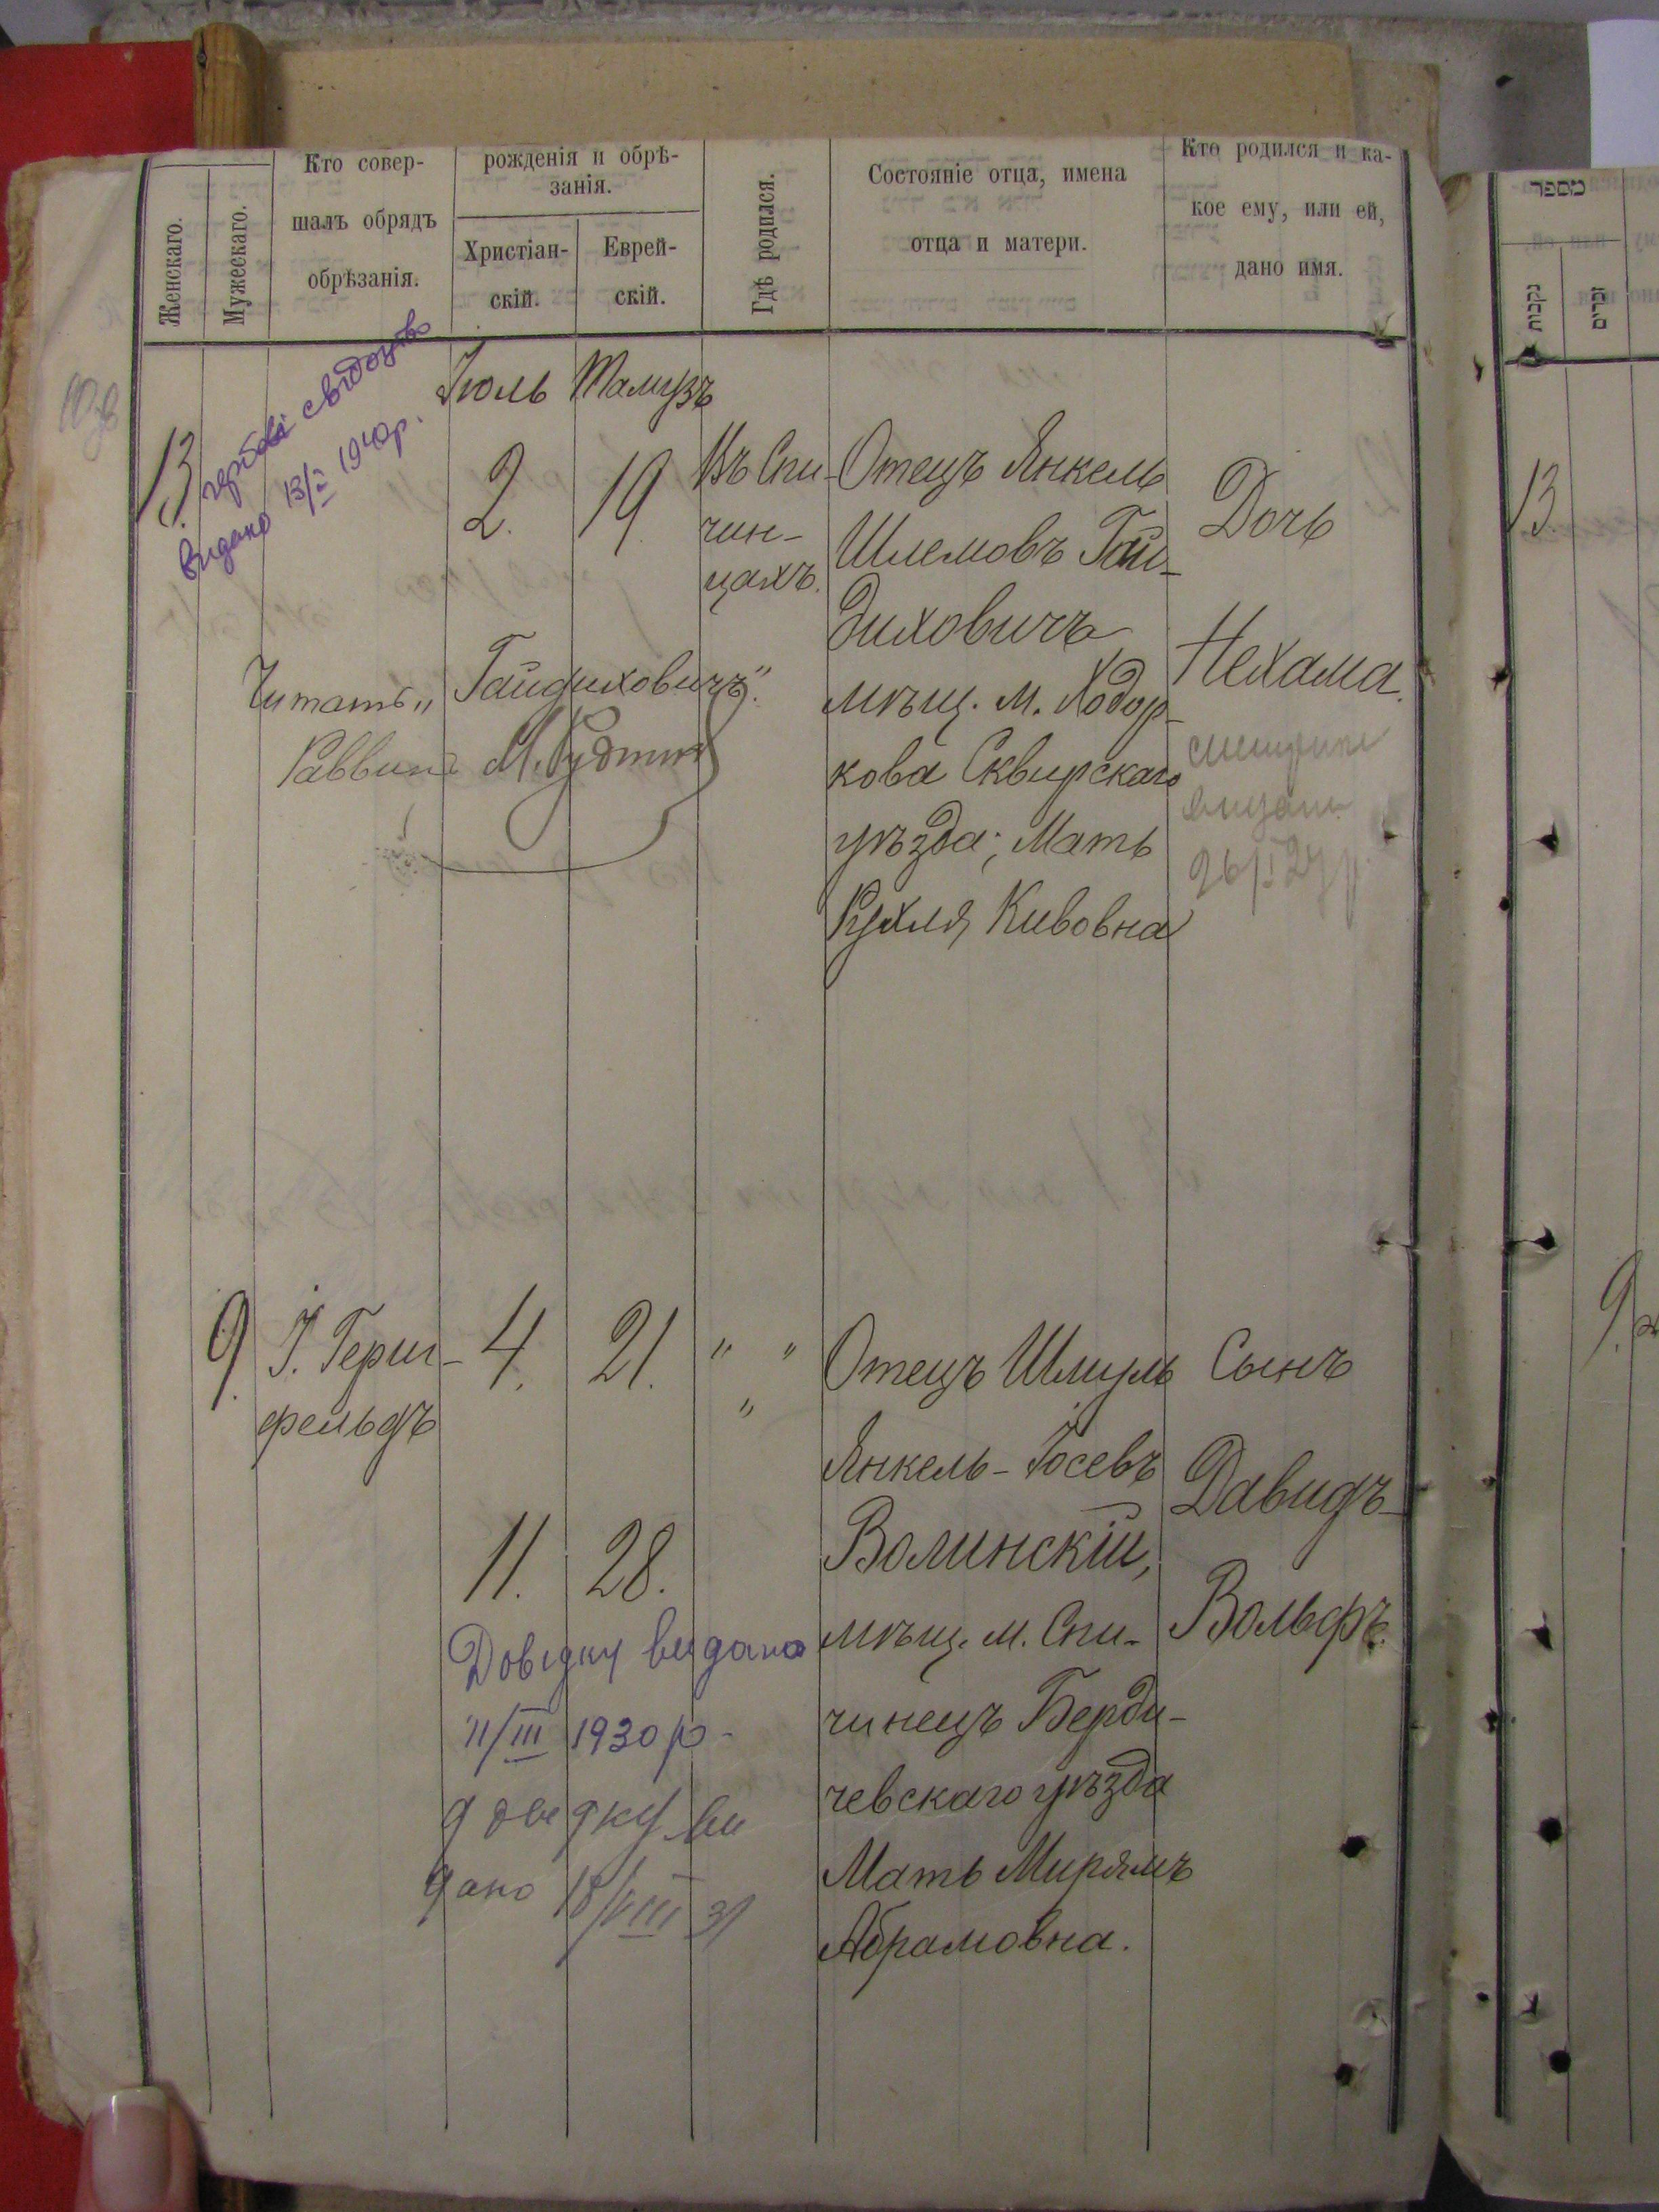 Женскаго.
Мужескаго.
Кто совер-
шалъ обрядъ
обрѣзанія.
рожденія и обрѣ-
занія.
Христіан-
скій.
Еврей-
скій.
Гдѣ родился.
Состояніе отца, имена
отца и матери.
Кто родился и ка-
кое ему, или ей,
дано имя.
Іюль Тамузъ
13.
свідоцтво
видано 13/I 1940р.
2.
19.
Въ Спи-
чин-
цахъ.
Отецъ Янкель
Шлемовъ Гай-
диховичъ
мѣщ. м. Ходор-
кова Сквирскаго
уѣзда; Мать
Рухля Кивовна
Дочь
Нехама.
Читать „Гайдиховичъ".
Раввинъ
видано
9.
І. Герш-
фельдъ
4.
21.
" "
"
11.
28.
Отецъ Шмуль
Янкель-Іосевъ
Волинскій,
мѣщ. м. Спи-
чинецъ Берди-
чевскаго уѣзда
Мать Мирямъ
Абрамовна.
Сынъ
Давидъ-
Вольфъ.
Довідку видано
11/III 1930 р-
довідку ви
дано 18/VIII 31
מספר
נקבות
זכרים
13
9.